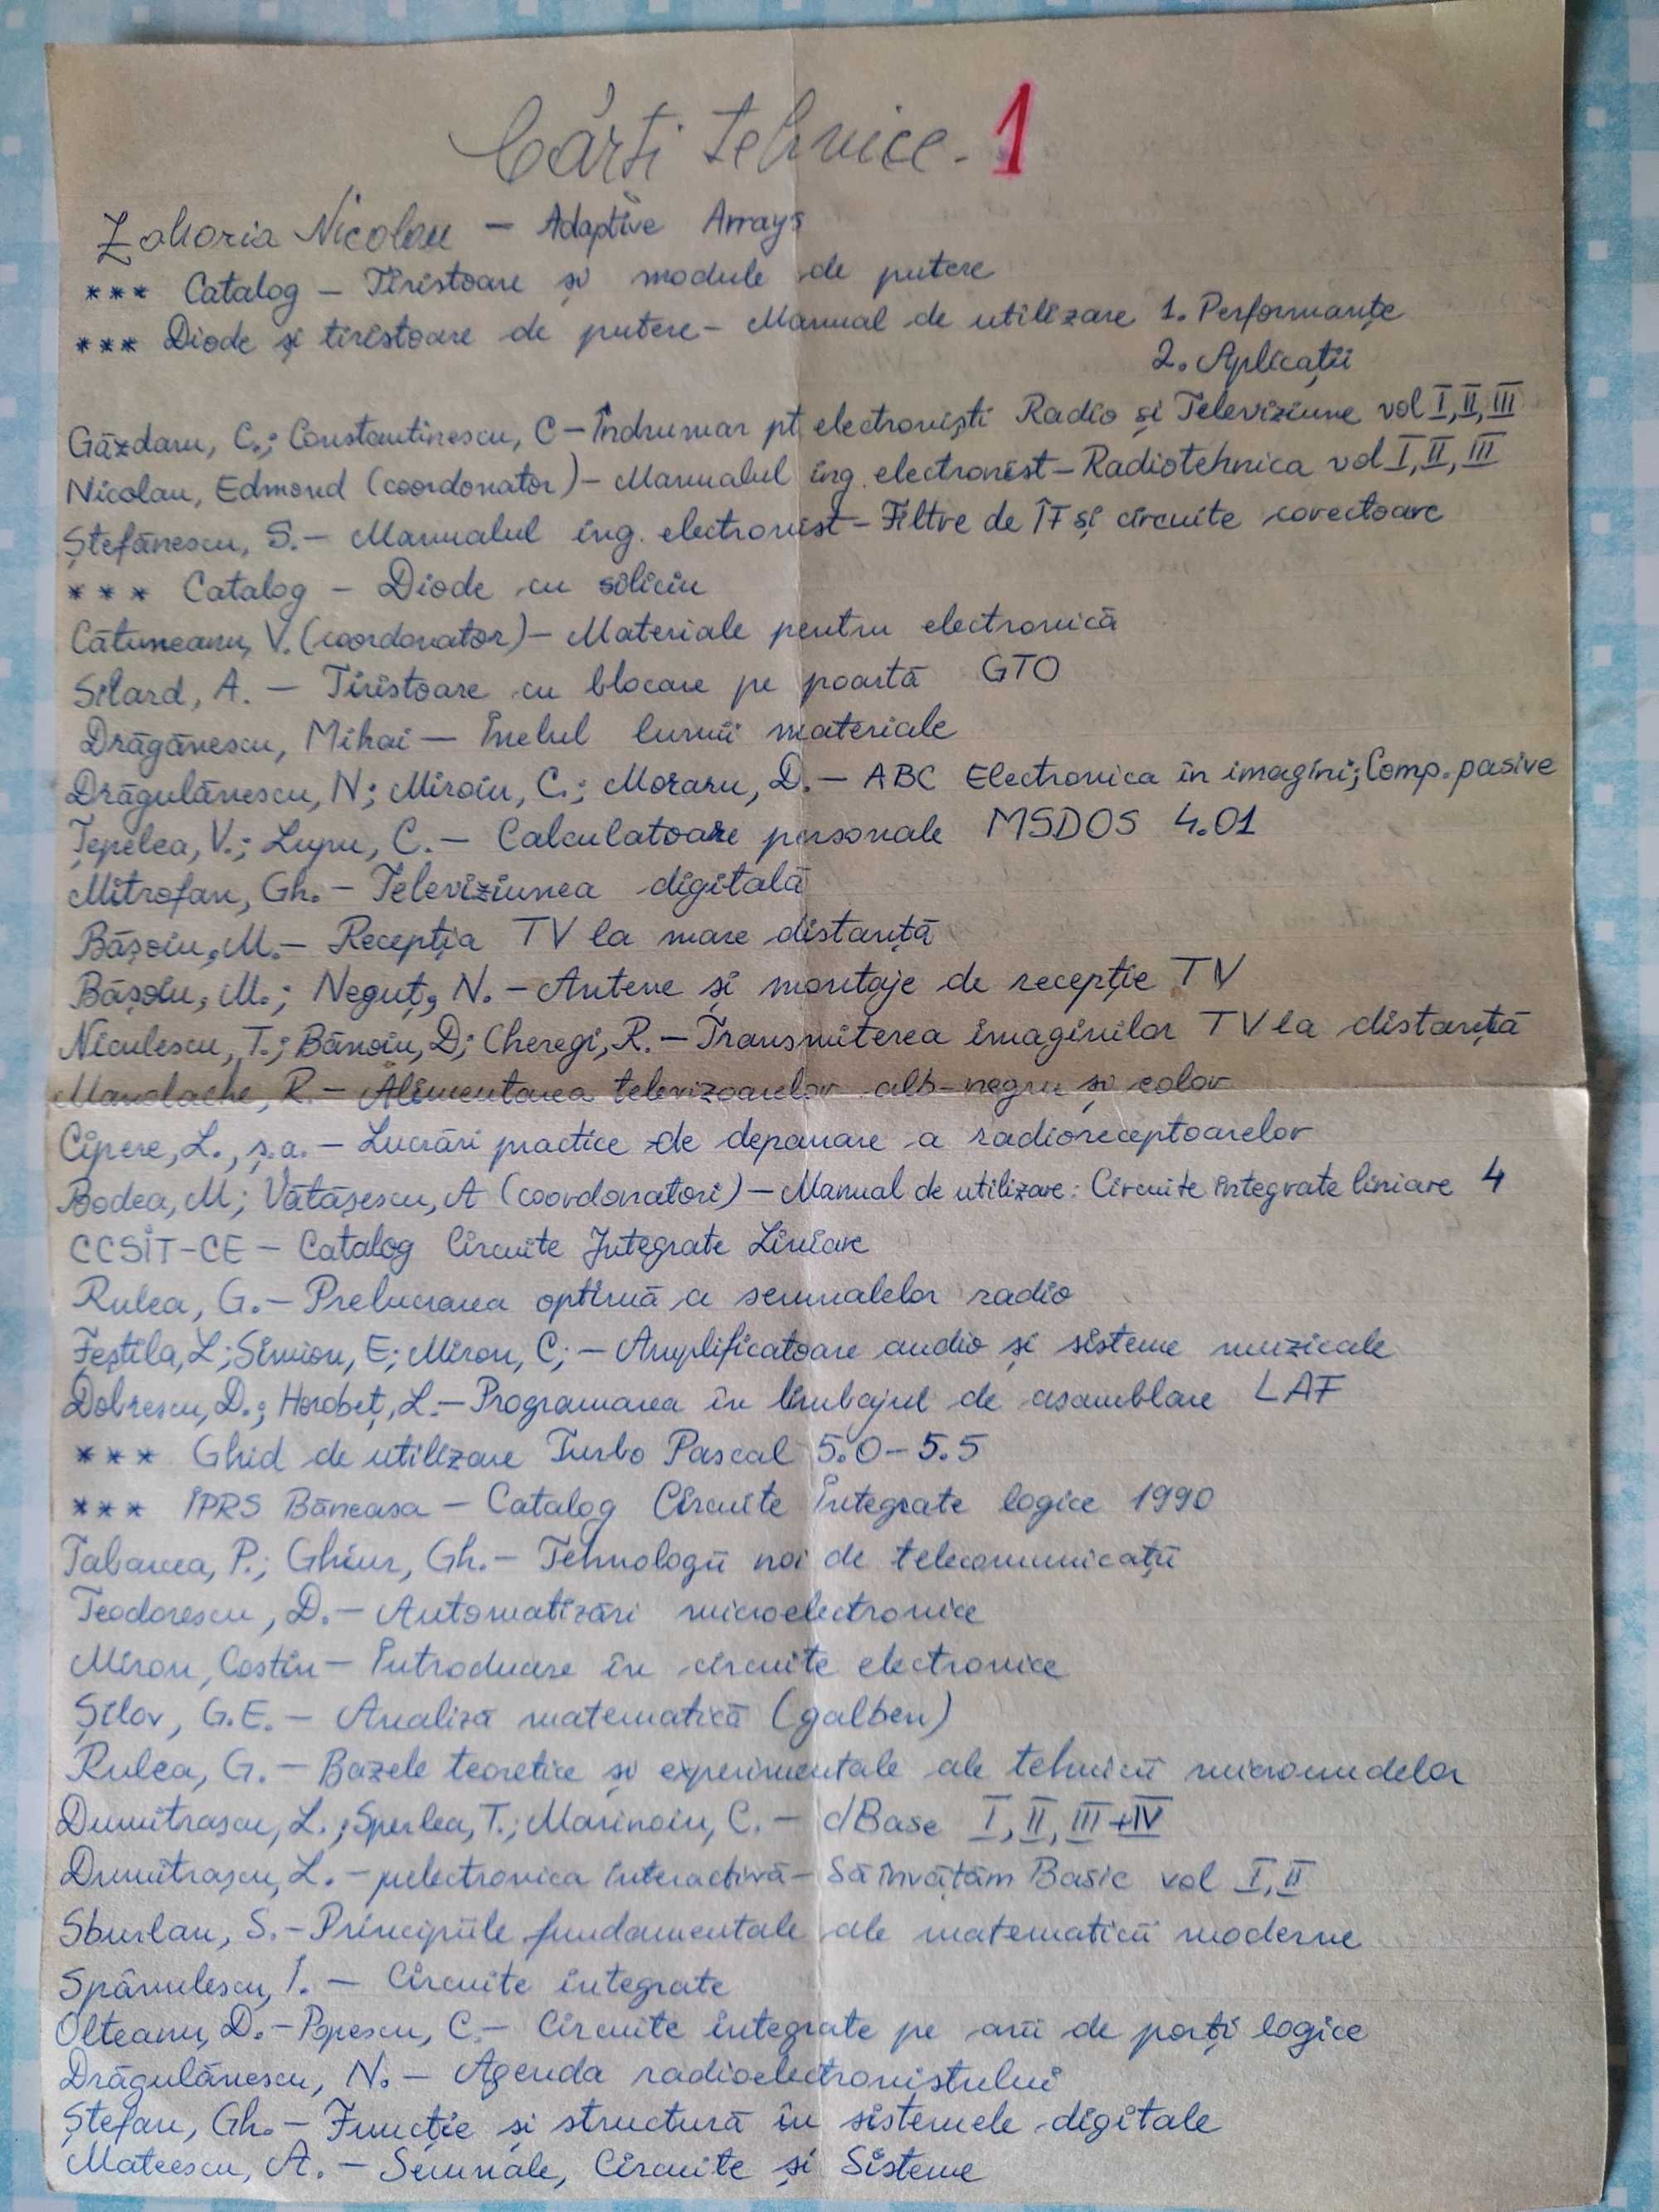 Cărți tehnice - 1
Zaharia Nicolau - Adaptive Arrays
*** Catalog - Tiristoare și module de putere
*** Diode și tiristoare de putere - Manual de utilizare 1. Performanțe
2. Aplicații
Găzdaru, C.; Constantinescu, C - Îndrumar pt electroniști Radio și Televiziune vol I, II, III
Nicolau, Edmond (coordonator) - Manualul ing. electronist - Radiotehnica vol I, II, III
Ștefănescu, S. - Manualul ing. electronist - Filtre de ÎF și circuite corectoare
*** Catalog - Diode cu siliciu
Cătuneanu, V. (coordonator) - Materiale pentru electronică
Silard, A. - Tiristoare cu blocare pe poartă GTO
Drăgănescu, Mihai - Inelul lumii materiale
Drăgulănescu, N; Miroiu, C.; Moraru, D. - ABC Electronica în imagini; Comp. pasive
Țepelea, V.; Lupu, C. - Calculatoare personale MSDOS 4.01
Mitrofan, Gh. - Televiziunea digitală
Băsoiu, M. - Recepția TV la mare distanță
Băsoiu, M.; Neguț, N. - Antene și montaje de recepție TV
Niculescu, T.; Bănoiu, D; Cheregi, R. - Transmiterea imaginilor TV la distanță
Manolache, R. - Alimentarea televizoarelor alb-negru și color
Cipere, L., ș.a. - Lucrări practice de depanare a radioreceptoarelor
Bodea, M; Vătășescu, A (coordonatori) - Manual de utilizare: Circuite integrate liniare 4
CCSIT-CE - Catalog Circuite Integrate Liniare
Rulea, G. - Prelucrarea optimă a semnalelor radio
Feștila, L; Simion, E; Miron, C; - Amplificatoare audio și sisteme muzicale
Dobrescu, D.; Horobeț, L. - Programarea în limbajul de asamblare LAF
*** Ghid de utilizare Turbo Pascal 5.0 - 5.5
*** IPRS Băneasa - Catalog Circuite Integrate logice 1990
Tabarcea, P.; Ghiur, Gh. - Tehnologii noi de telecomunicații
Teodorescu, D. - Automatizări microelectronice
Miron, Costin - Introducere în circuite electronice
Șilov, G.E. - Analiză matematică (galben)
Rulea, G. - Bazele teoretice și experimentale ale tehnicii microundelor
Dumitrașcu, L.; Sperlea, T.; Marinoiu, C. - dBase I, II, III + IV
Dumitrașcu, L. - μelectronica interactivă - Să învățăm Basic vol I, II
Sburlan, S. - Principiile fundamentale ale matematicii moderne
Spânulescu, I. - Circuite integrate
Olteanu, D. - Popescu, C. - Circuite integrate pe arii de porți logice
Drăgulănescu, N. - Agenda radioelectronistului
Ștefan, Gh. - Funcție și structură în sistemele digitale
Mateescu, A. - Semnale, Circuite și Sisteme